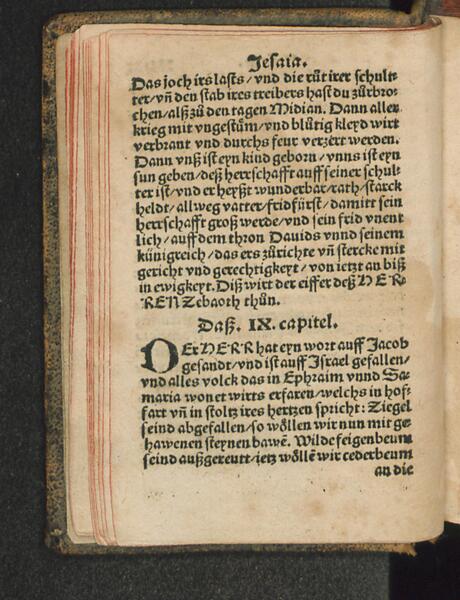 Jesaia.
Das joch irs lasts / vnd die růt irer schult⸗
ter / vñ den stab ires treibers hast du zůrbro⸗
chen / alß zů den tagen Midian. Dann aller
krieg mit vngestům / vnd blůtig kleyd wirt
verbrant vnd durchs feur verzert werden.
Dann vnß ist eyn kind geborn / vnns ist eyn
sun geben / deß herrschafft auff seiner schul⸗
ter ist / vnd er heyßt wunderbar / rath / starck
heldt / allweg vatter / fridfürst / damitt sein
herrschafft groß werde / vnd sein frid vnent
lich / auff dem thron Dauids vnnd seinem
künigreich / das ers zůrichte vñ stercke mit
gericht vnd gerechtigkeyt / von ietzt an biß
in ewigkeyt. Diß wirt der eiffer deß HER⸗
REN Zebaoth thůn.
Daß. IX. capitel.
DEr HERR hat eyn wort auff Jacob
gesandt / vnd ist auff Israel gefallen /
vnd alles volck das in Ephraim vnnd Sa⸗
maria wonet wirts erfaren / welchs in hof⸗
fart vñ in stoltz ires hertzen spricht: Ziegel
seind abgefallen / so wöllen wir nun mit ge
hawenen steynen bawẽ. Wilde feigenbeum
seind außgereutt / ietz wöllẽ wir cederbeum
an die